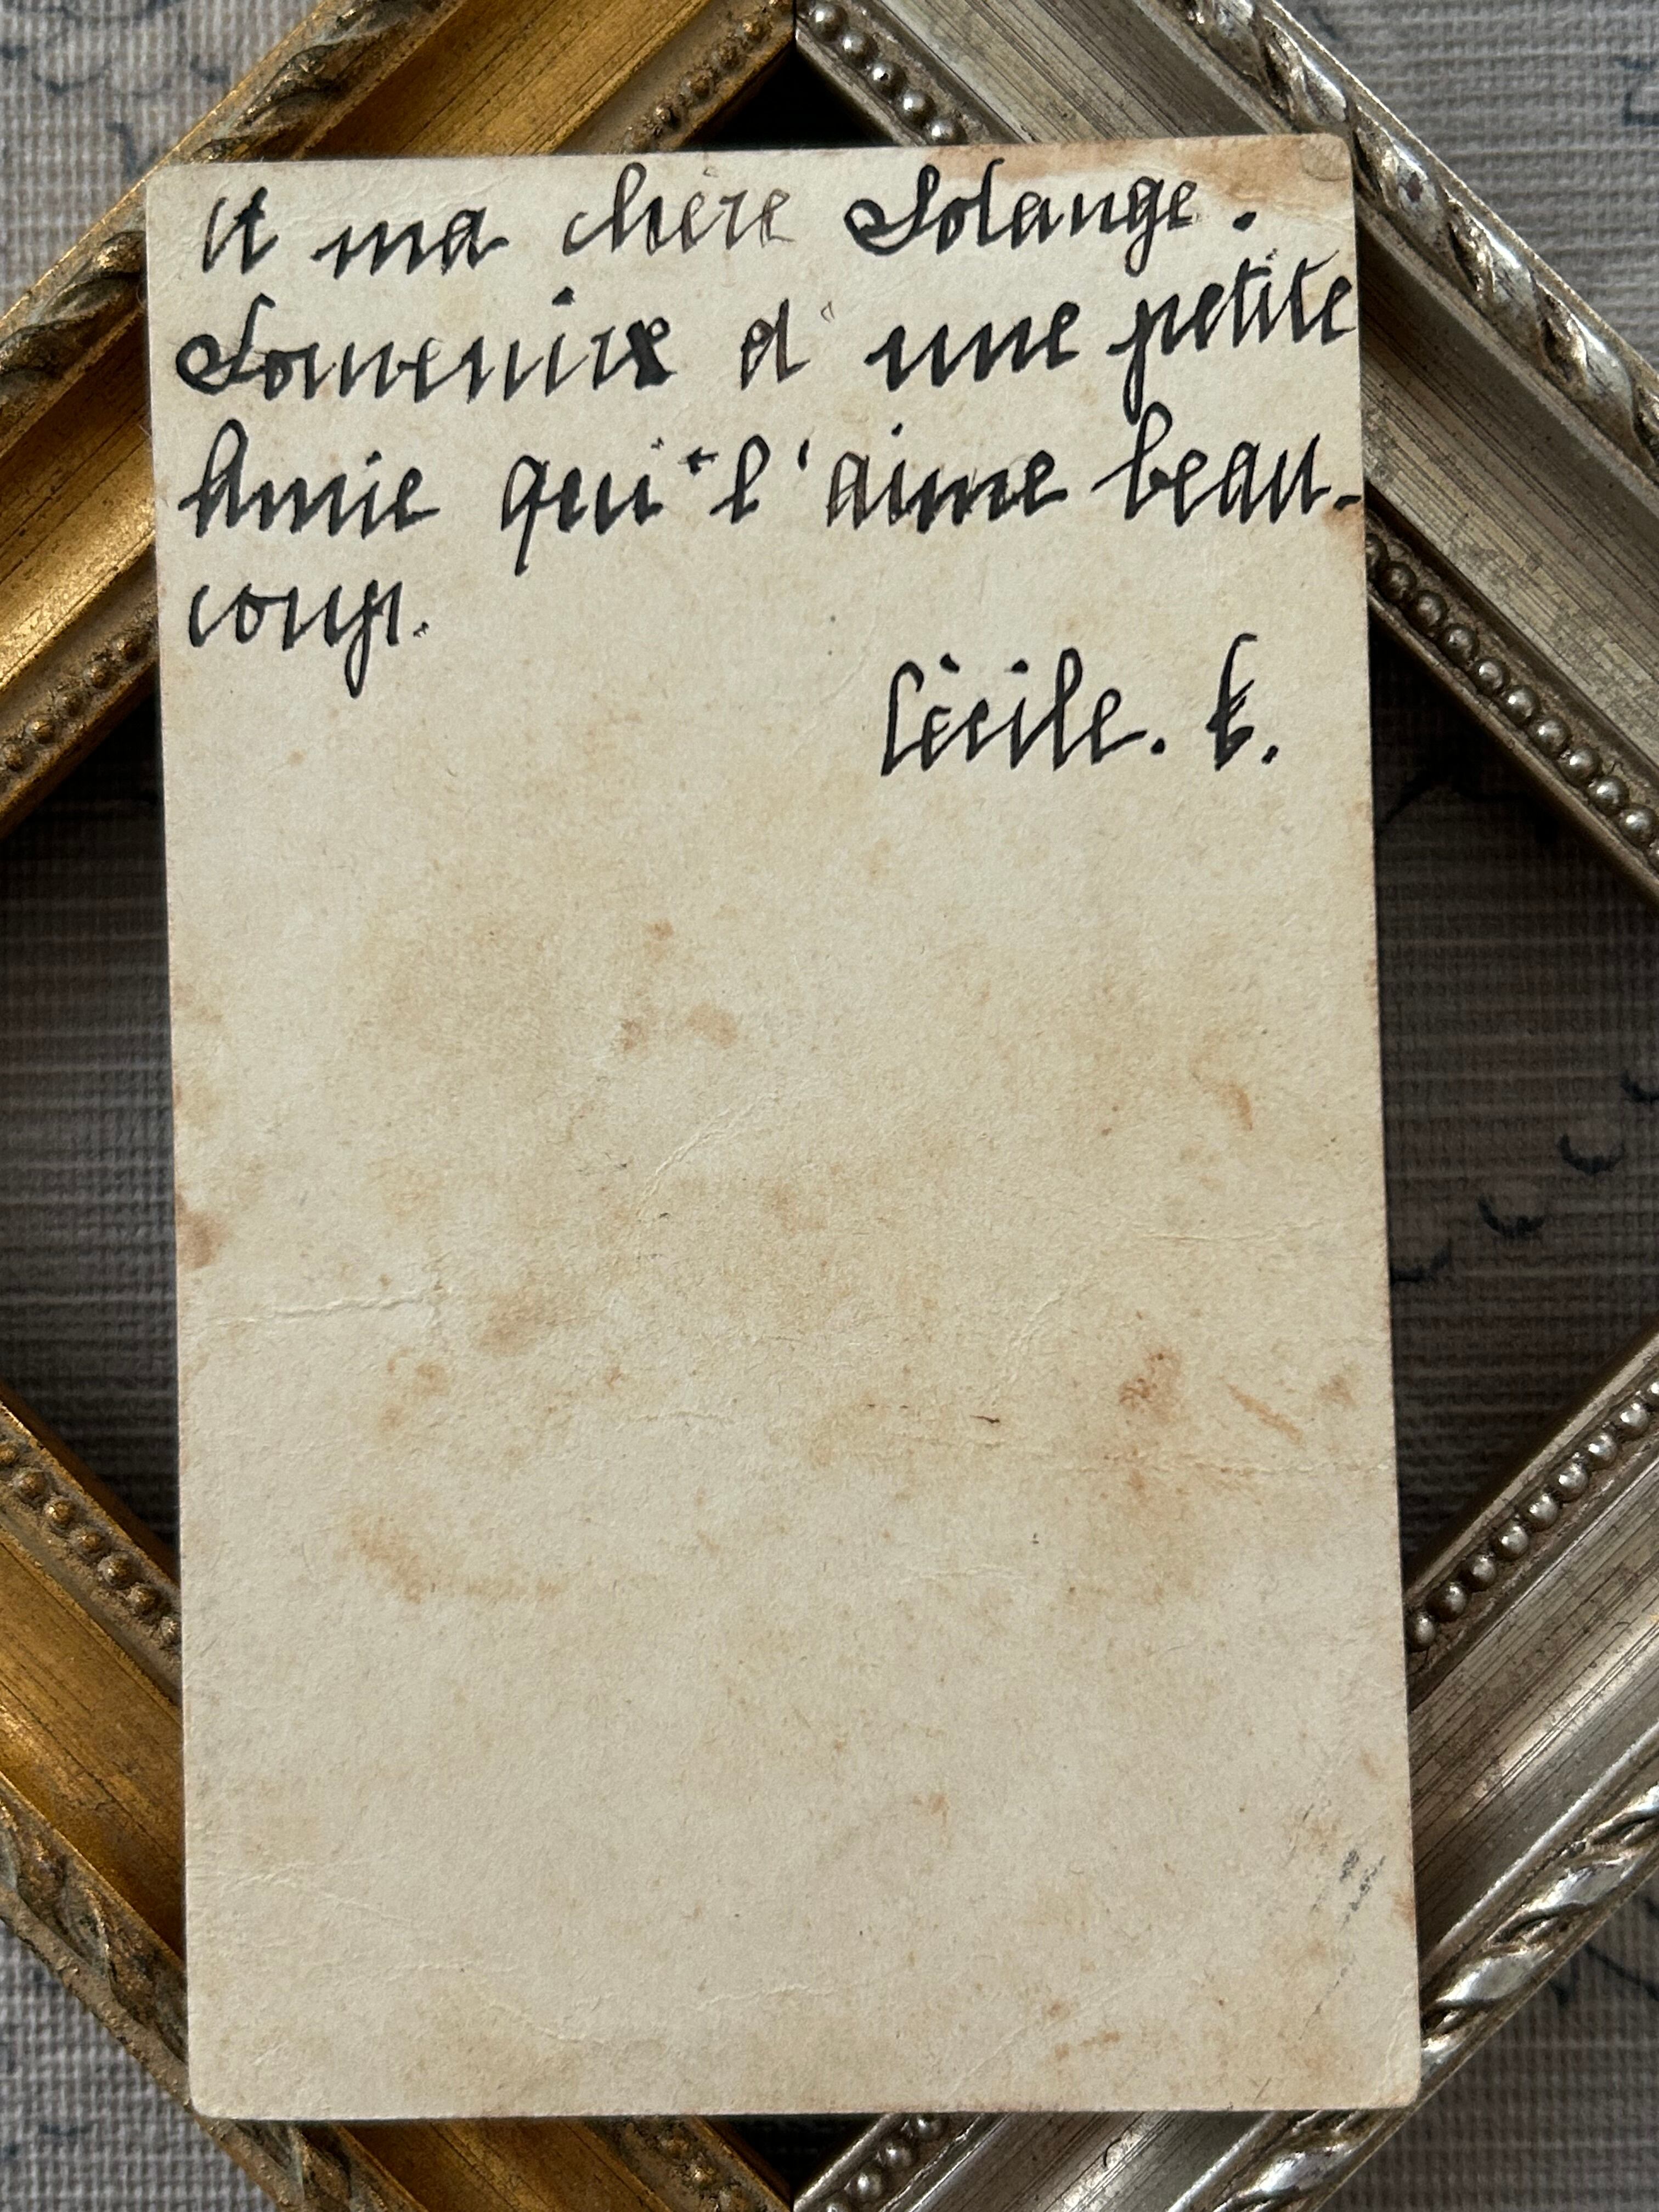 A ma chère Solange.
Souvenirs d'une petite
Amie qui l'aime beau-
coup.
Cécile. E.